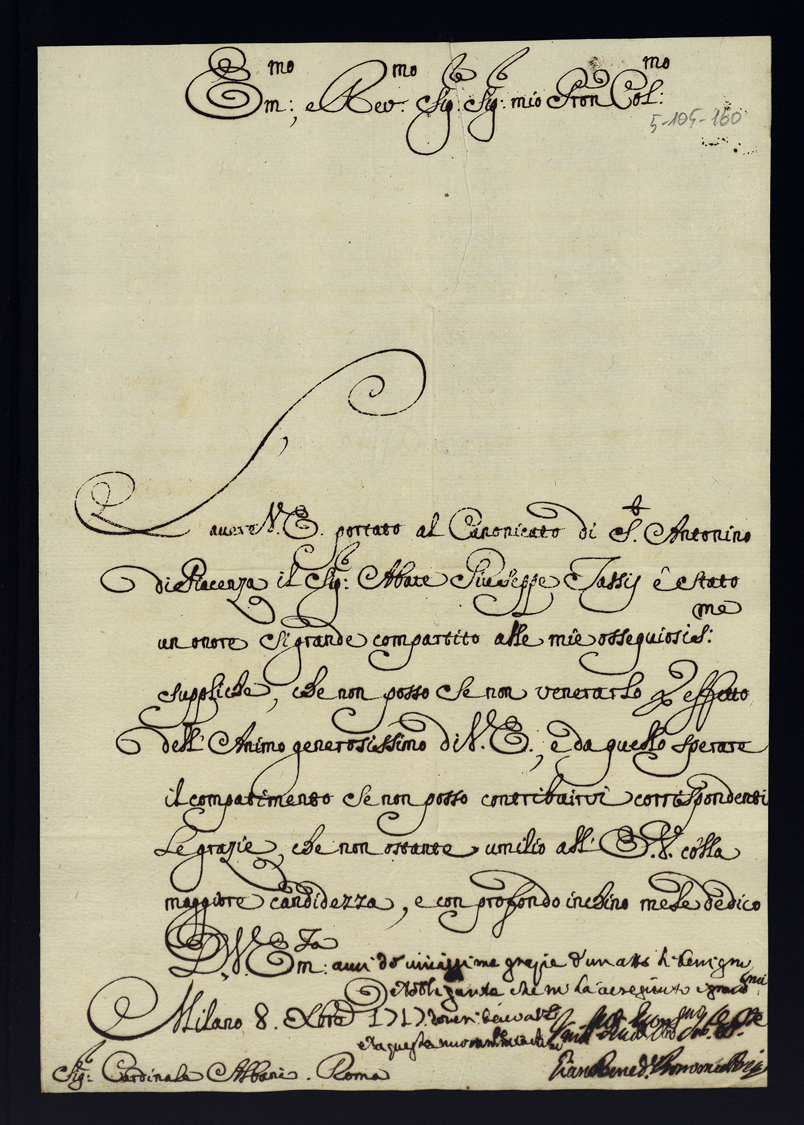 Em:mo, e Rev.mo Sig.r Sig.r mio Pron Col:mo
5-105-160
L'
avere V.E. portato al Canonicato di S.t Antonino
di Piacenza il Sig.r Abate Giuseppe Tassij è stato
un onore sì grande compartito alle mie osseguiosis:me
suppliche, che non posso se non venerarlo p effetto
dell'Animo generosissimo di V.E., e da quello sperare
il compatimento se non posso contribuirvi corrispondenti
Le grazie, che non ostante umilio all'E.V. colla
maggiore candidezza, e con profondo inchino mele dedico
D. V. Em:za
anzi do vivissime grazie d'un atto di benign
obbligante che
Milano 8. Xbre 1717.
e a questa
Sig.r Cardinale Albani. Roma
Gian Bened.o Borromeo